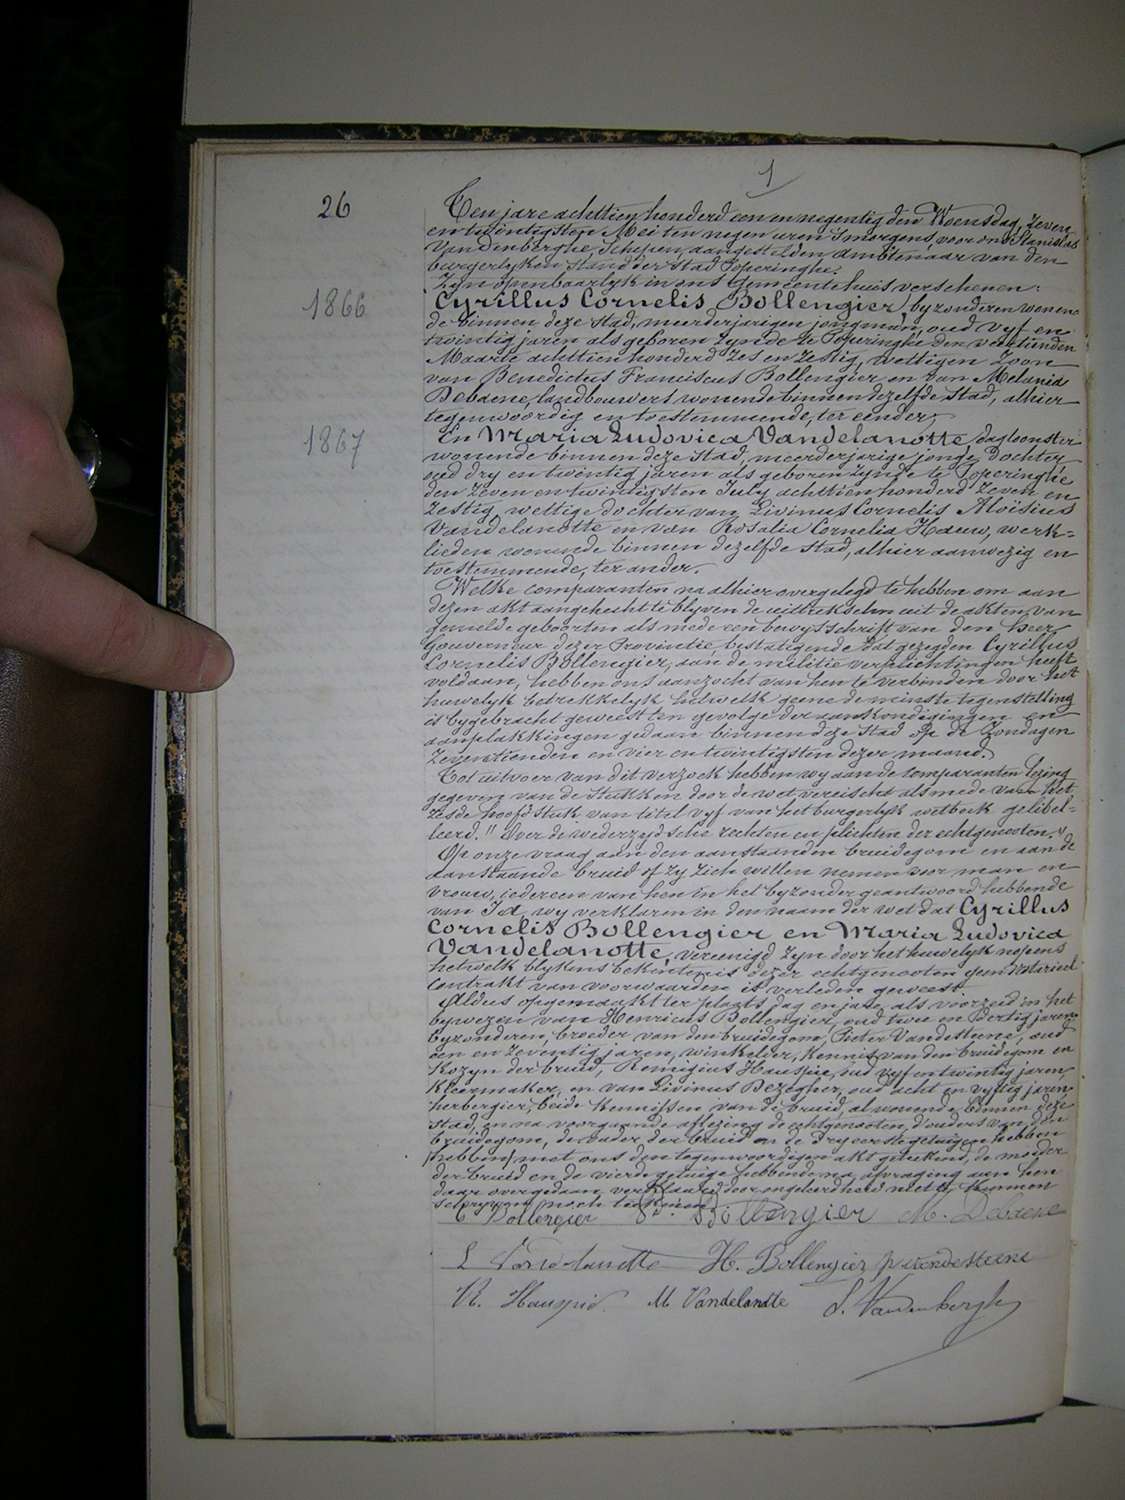 1
26
Ten jare achttien honderd een en negentig den Woensdag, zeven
en twintigsten Mei ten negen uren 's morgens, voor ons Stanislas
Vandenberghe, Schepen, aangestelden ambtenaar van den
burgerlyken stand der stad Poperinghe.
Zyn openbaarlyk in ons Gemeentehuis verschenen:
1866
Cyrillus Cornelis Bollengier, byzonderen wonen-
de binnen deze stad, meerderjarigen jongman, oud vyf en
twintig jaren als geboren zynde te Poperinghe den
Maarte achttien honderd zes en zestig, wettigen zoon
van Benedictus Franciscus Bollengier en van Melania
Debaene, landbouwers wonende binnen dezelfde stad, alhier
tegenwoordig en toestemmende, ter eender,
1867
En Maria Ludovica Vandelanotte, dagloonster
wonende binnen deze stad, meerderjarige jonge dochter
oud dry en twintig jaren als geboren zynde te Poperinghe
den zeven en twintigsten July achttien honderd zeven en
zestig, wettige dochter van Livinus Cornelis Aloïsius
Vandelanotte en van Rosalia Cornelia Heeuw, werk=
lieden wonende binnen dezelfde stad, alhier aanwezig en
toestemmende, ter ander.
Welke comparanten na alhier overgelegd te hebben om aan
dezen akt aangehecht te blyven de uittreksels uit de akten van
gemelde geboorten als mede een bewysschrift van den heer
Gouverneur dezer Provintie bestatigende dat gezegden Cyrillus
Cornelis Bollengier, aan de militie verplichtingen heeft
voldaan, hebben ons aanzocht van hen te verbinden door het
huwelyk betrekkelyk hetwelk geene de minste tegenstelling
is bygebracht geweest ten gevolge der aankondigingen en
aanplakkingen gedaan binnen deze stad op de Zondagen
zeventienden en vier en twintigsten dezer maand.
Tot uitvoer van dit verzoek hebben wy aan de comparanten lezing
gegeven van de stukken door de wet vereischt als mede van het
zesde hoofdstuk van titel vyf van het burgerlyk wetboek gelibel=
leerd. " Over de wederzydsche rechten en plichten der echtgenooten. "
Op onze vraag aan den aanstaanden bruidegom en aan de
aanstaande bruid of zy zich willen nemen voor man en
vrouw, iedereen van hen in het byzonder geantwoord hebbende
van Ja, wy verklaren in den naam der wet dat Cyrillus
Cornelis Bollengier en Maria Ludovica
Vandelanotte, vereenigd zyn door het huwelyk nopens
hetwelk blykens bekentenis dezer echtgenooten geen notarieel
contrakt van voorwaarden is verleden geweest.
Aldus opgemaakt ter plaats, dag en jare als voorzeid in het
bywezen van Henricus Bollengier, oud twee en dertig jaren
byzonderen, broeder van den bruidegom, Pieter Vandesteene, oud
een en zeventig jaren, winkelier, kennis van den bruidegom en
kozyn der bruid, Remigius Hauspie, oud vyf en twintig jaren,
kleermaker, en van Livinus Dezegher, oud acht en vyftig jaren
herbergier, beide kennissen van de bruid, al wonende binnen deze
stad, en na voorgaande aflezing de echtgenooten, d'ouders van den
bruidegom, de vader der bruid en de dry eerste getuigen hebben
/hebben/ met ons den tegenwoordigen akt geteekend, de moeder
der bruid en de vierde getuige hebbende na opvraging aan hen
daar over gedaan verklaard door ongeleerdheid niet te kunnen
schryven noch teekenen.
C Bollengier Bt. Bollengier M. Debaene
L Vandelanotte H. Bollengier p vandesteene
R. Hauspie M Vandelanotte S. Vandenberghe